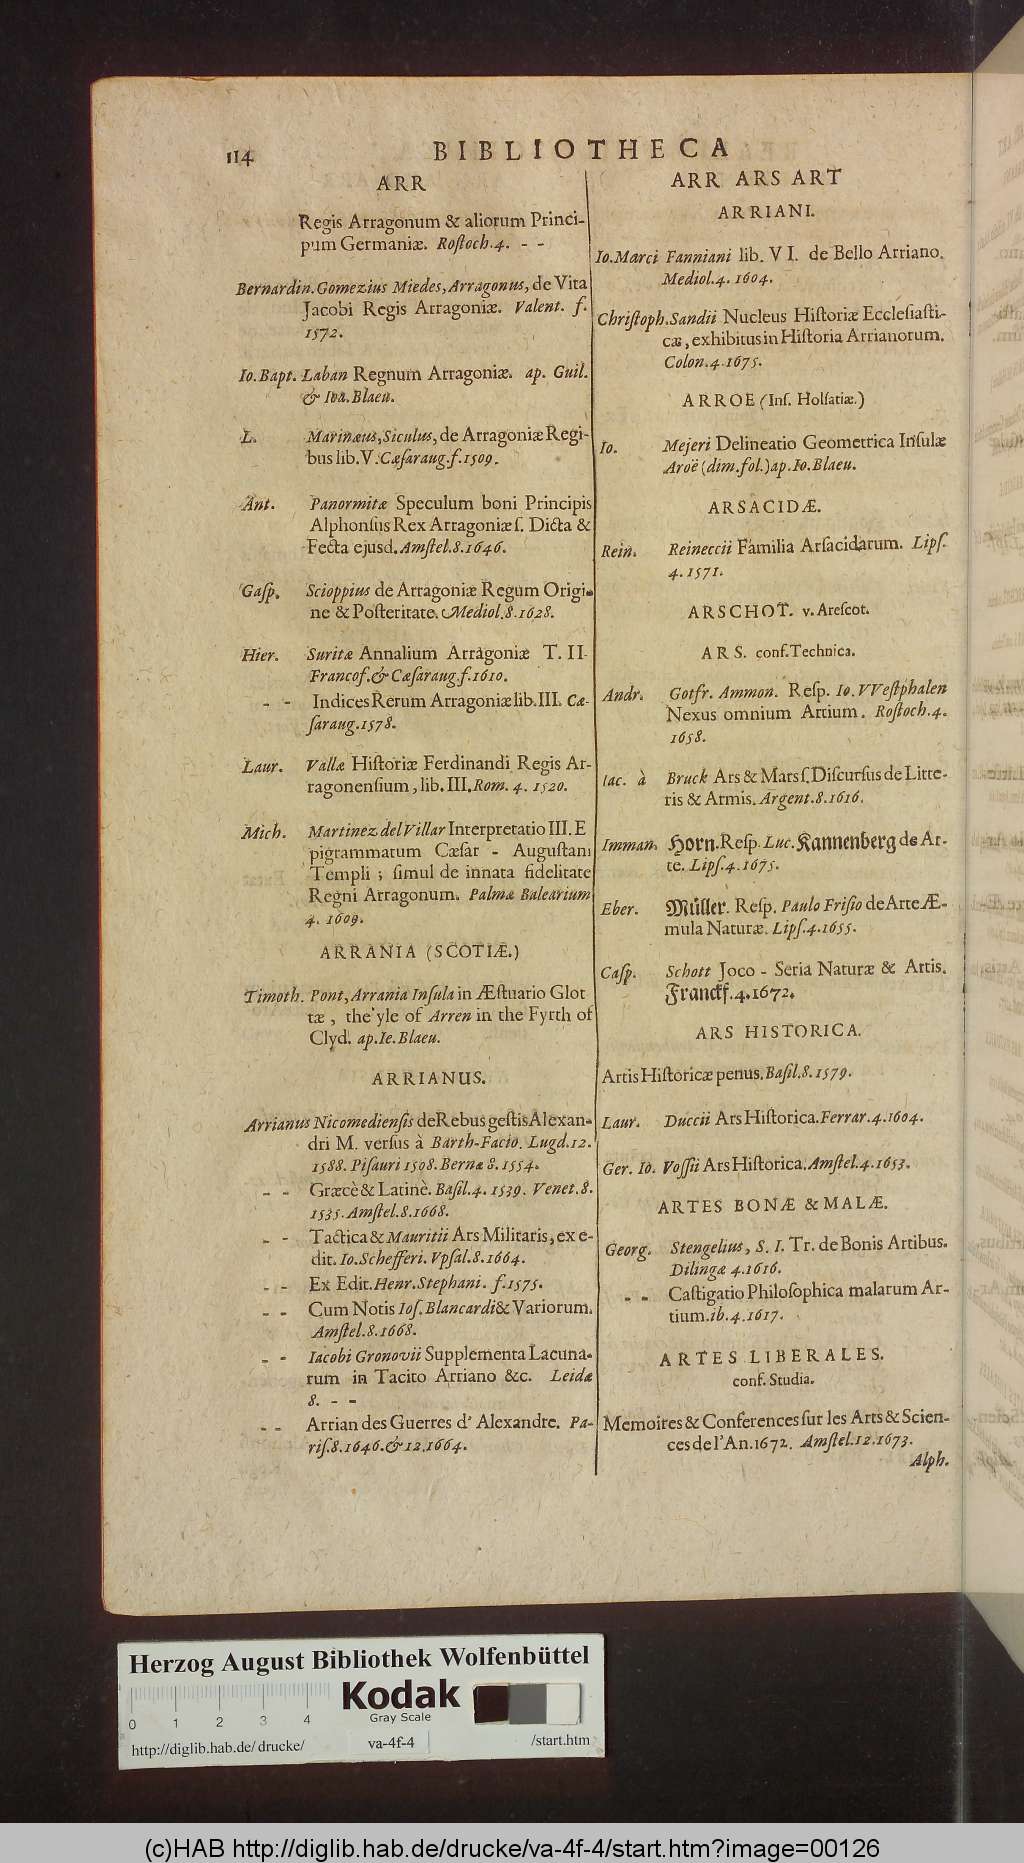 114
BIBLIOTHECA
ARR
Regis Arragonum & aliorum Princi-
pum Germaniæ. Roſtoch. 4. - -
Bernardin. Gomezius Miedes, Arragonus, de Vita
Jacobi Regis Arragoniæ. Valent. f.
1572.
Io. Bapt. Laban Regnum Arragoniæ. ap. Guil.
& Ioa. Blaeu.
L. Marinæus, Siculus, de Arragoniæ Regi-
bus lib. V. Cæſaraug. f. 1509.
Ant. Panormitæ Speculum boni Principis
Alphonſus Rex Arragoniæ ſ. Dicta &
Fecta ejusd. Amſtel. 8. 1646.
Gaſp. Scioppius de Arragoniæ Regum Origi-
ne & Poſteritate. Mediol. 8. 1628.
Hier. Suritæ Annalium Arragoniæ T. II.
Francof. & Cæſaraug. f. 1610.
- - Indices Rerum Arragoniæ lib. III. Cæ-
ſaraug. 1578.
Laur. Vallæ Hiſtoriæ Ferdinandi Regis Ar-
ragonenſium, lib. III. Rom. 4. 1520.
Mich. Martinez del Villar Interpretatio III. E
pigrammatum Cæſar - Auguſtani
Templi ; ſimul de innata fidelitate
Regni Arragonum. Palmæ Balearium
4. 1609.
ARRANIA (SCOTIÆ.)
Timoth. Pont, Arrania Inſula in Æſtuario Glot
tæ, the yle of Arren in the Fyrth of
Clyd. ap. Ie. Blaeu.
ARRIANUS.
Arrianus Nicomedienſis de Rebus geſtis Alexan-
dri M. verſus à Barth-Facio. Lugd. 12.
1588. Piſauri 1508. Bernæ 8. 1554.
- - Græcè & Latinè. Baſil. 4. 1539. Venet. 8.
1535. Amſtel. 8. 1668.
- - Tactica & Mauritii Ars Militaris, ex e-
dit. Io. Schefferi. Vpſal. 8. 1664.
- - Ex Edit. Henr. Stephani. f. 1575.
- - Cum Notis Ioſ. Blancardi & Variorum.
Amſtel. 8. 1668.
- - Iacobi Gronovii Supplementa Lacuna-
rum in Tacito Arriano &c. Leidæ
8. - -
- - Arrian des Guerres d' Alexandre. Pa-
riſ. 8. 1646. & 12. 1664.
ARR ARS ART
ARRIANI.
Io. Marci Fanniani lib. VI. de Bello Arriano.
Mediol. 4. 1604.
Chriſtoph. Sandii Nucleus Hiſtoriæ Eccleſiaſti-
cæ, exhibitus in Hiſtoria Arrianorum.
Colon. 4. 1675.
ARROE (Inſ. Holſatiæ.)
Io. Mejeri Delineatio Geometrica Inſulæ
Aroë (dim. fol.) ap. Io. Blaeu.
ARSACIDÆ.
Rein. Reineccii Familia Arſacidarum. Lipſ.
4. 1571.
ARSCHOT. v. Areſcot.
ARS. conf. Technica.
Andr. Gotfr. Ammon. Reſp. Io. VVeſtphalen
Nexus omnium Artium. Roſtoch. 4.
1658.
Iac. à Bruck Ars & Mars ſ. Diſcurſus de Litte-
ris & Armis. Argent. 8. 1616.
Imman. Horn. Reſp. Luc. Kannenberg de Ar-
te. Lipſ. 4. 1675.
Eber. Müller. Reſp. Paulo Friſio de Arte Æ-
mula Naturæ. Lipſ. 4. 1655.
Caſp. Schott Joco - Seria Naturæ & Artis.
Franckf. 4. 1672.
ARS HISTORICA.
Artis Hiſtoricæ penus. Baſil. 8. 1579.
Laur. Duccii Ars Hiſtorica. Ferrar. 4. 1604.
Ger. Io. Voſſii Ars Hiſtorica. Amſtel. 4. 1653.
ARTES BONÆ & MALÆ.
Georg. Stengelius, S. I. Tr. de Bonis Artibus.
Dilingæ 4. 1616.
- - Caſtigatio Philoſophica malarum Ar-
tium. ib. 4. 1617.
ARTES LIBERALES.
conf. Studia.
Memoires & Conferences ſur les Arts & Scien-
ces de l'An. 1672. Amſtel. 12. 1673.
Alph.
Herzog August Bibliothek Wolfenbüttel
Kodak
Gray Scale
0 1 2 3 4
http://diglib.hab.de/drucke/ va-4f-4 /start.htm
(c)HAB http://diglib.hab.de/drucke/va-4f-4/start.htm?image=00126